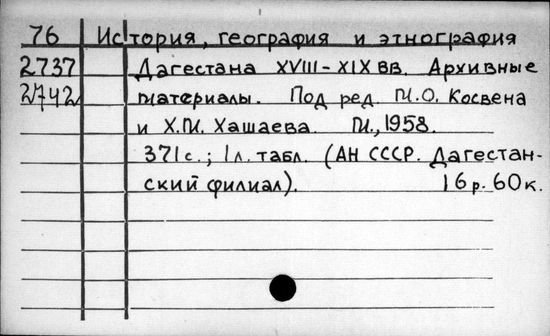 76 История, география и этнография
2737 Дагестана XVIII-XIX вв. Архивные
2742 материалы. Под ред. М.О. Косвена
и Х.М. Хашаева. М., 1958.
371с.; 1л. табл. (АН СССР. Дагестан-
ский филиал). 16р. 60к.